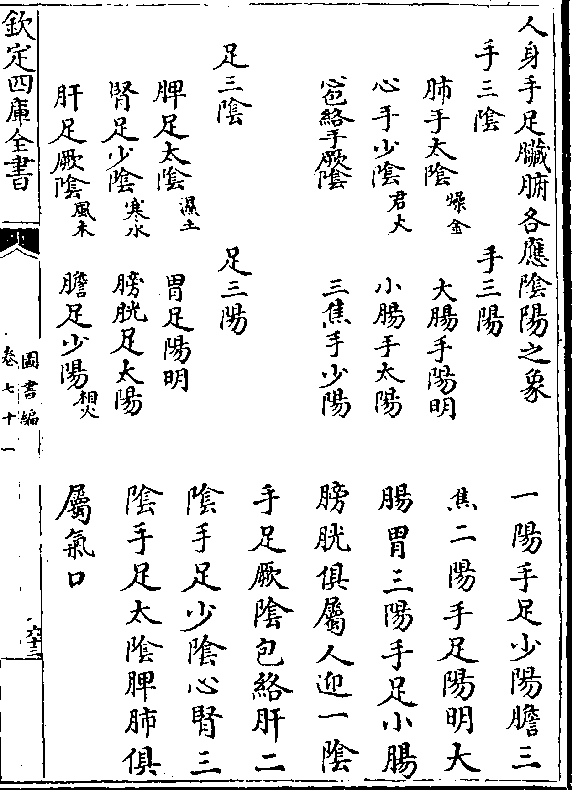 人身手足臟腑各應陰陽之象
手三陰
手三陽
肺手太陰 燥金
大腸手陽明
心手少陰 君火
小腸手太陽
心包絡手厥陰
三焦手少陽
足三陰
足三陽
脾足太陰 濕土
胃足陽明
腎足少陰 寒水
膀胱足太陽
肝足厥陰 風木
膽足少陽 相火
一陽手足少陽膽三
焦二陽手足陽明大
腸胃三陽手足小腸
膀胱俱屬人迎一陰
手足厥陰包絡肝二
陰手足少陰心腎三
陰手足太陰脾肺俱
屬氣口
欽定四庫全書
圖書編
卷七十一
六十三